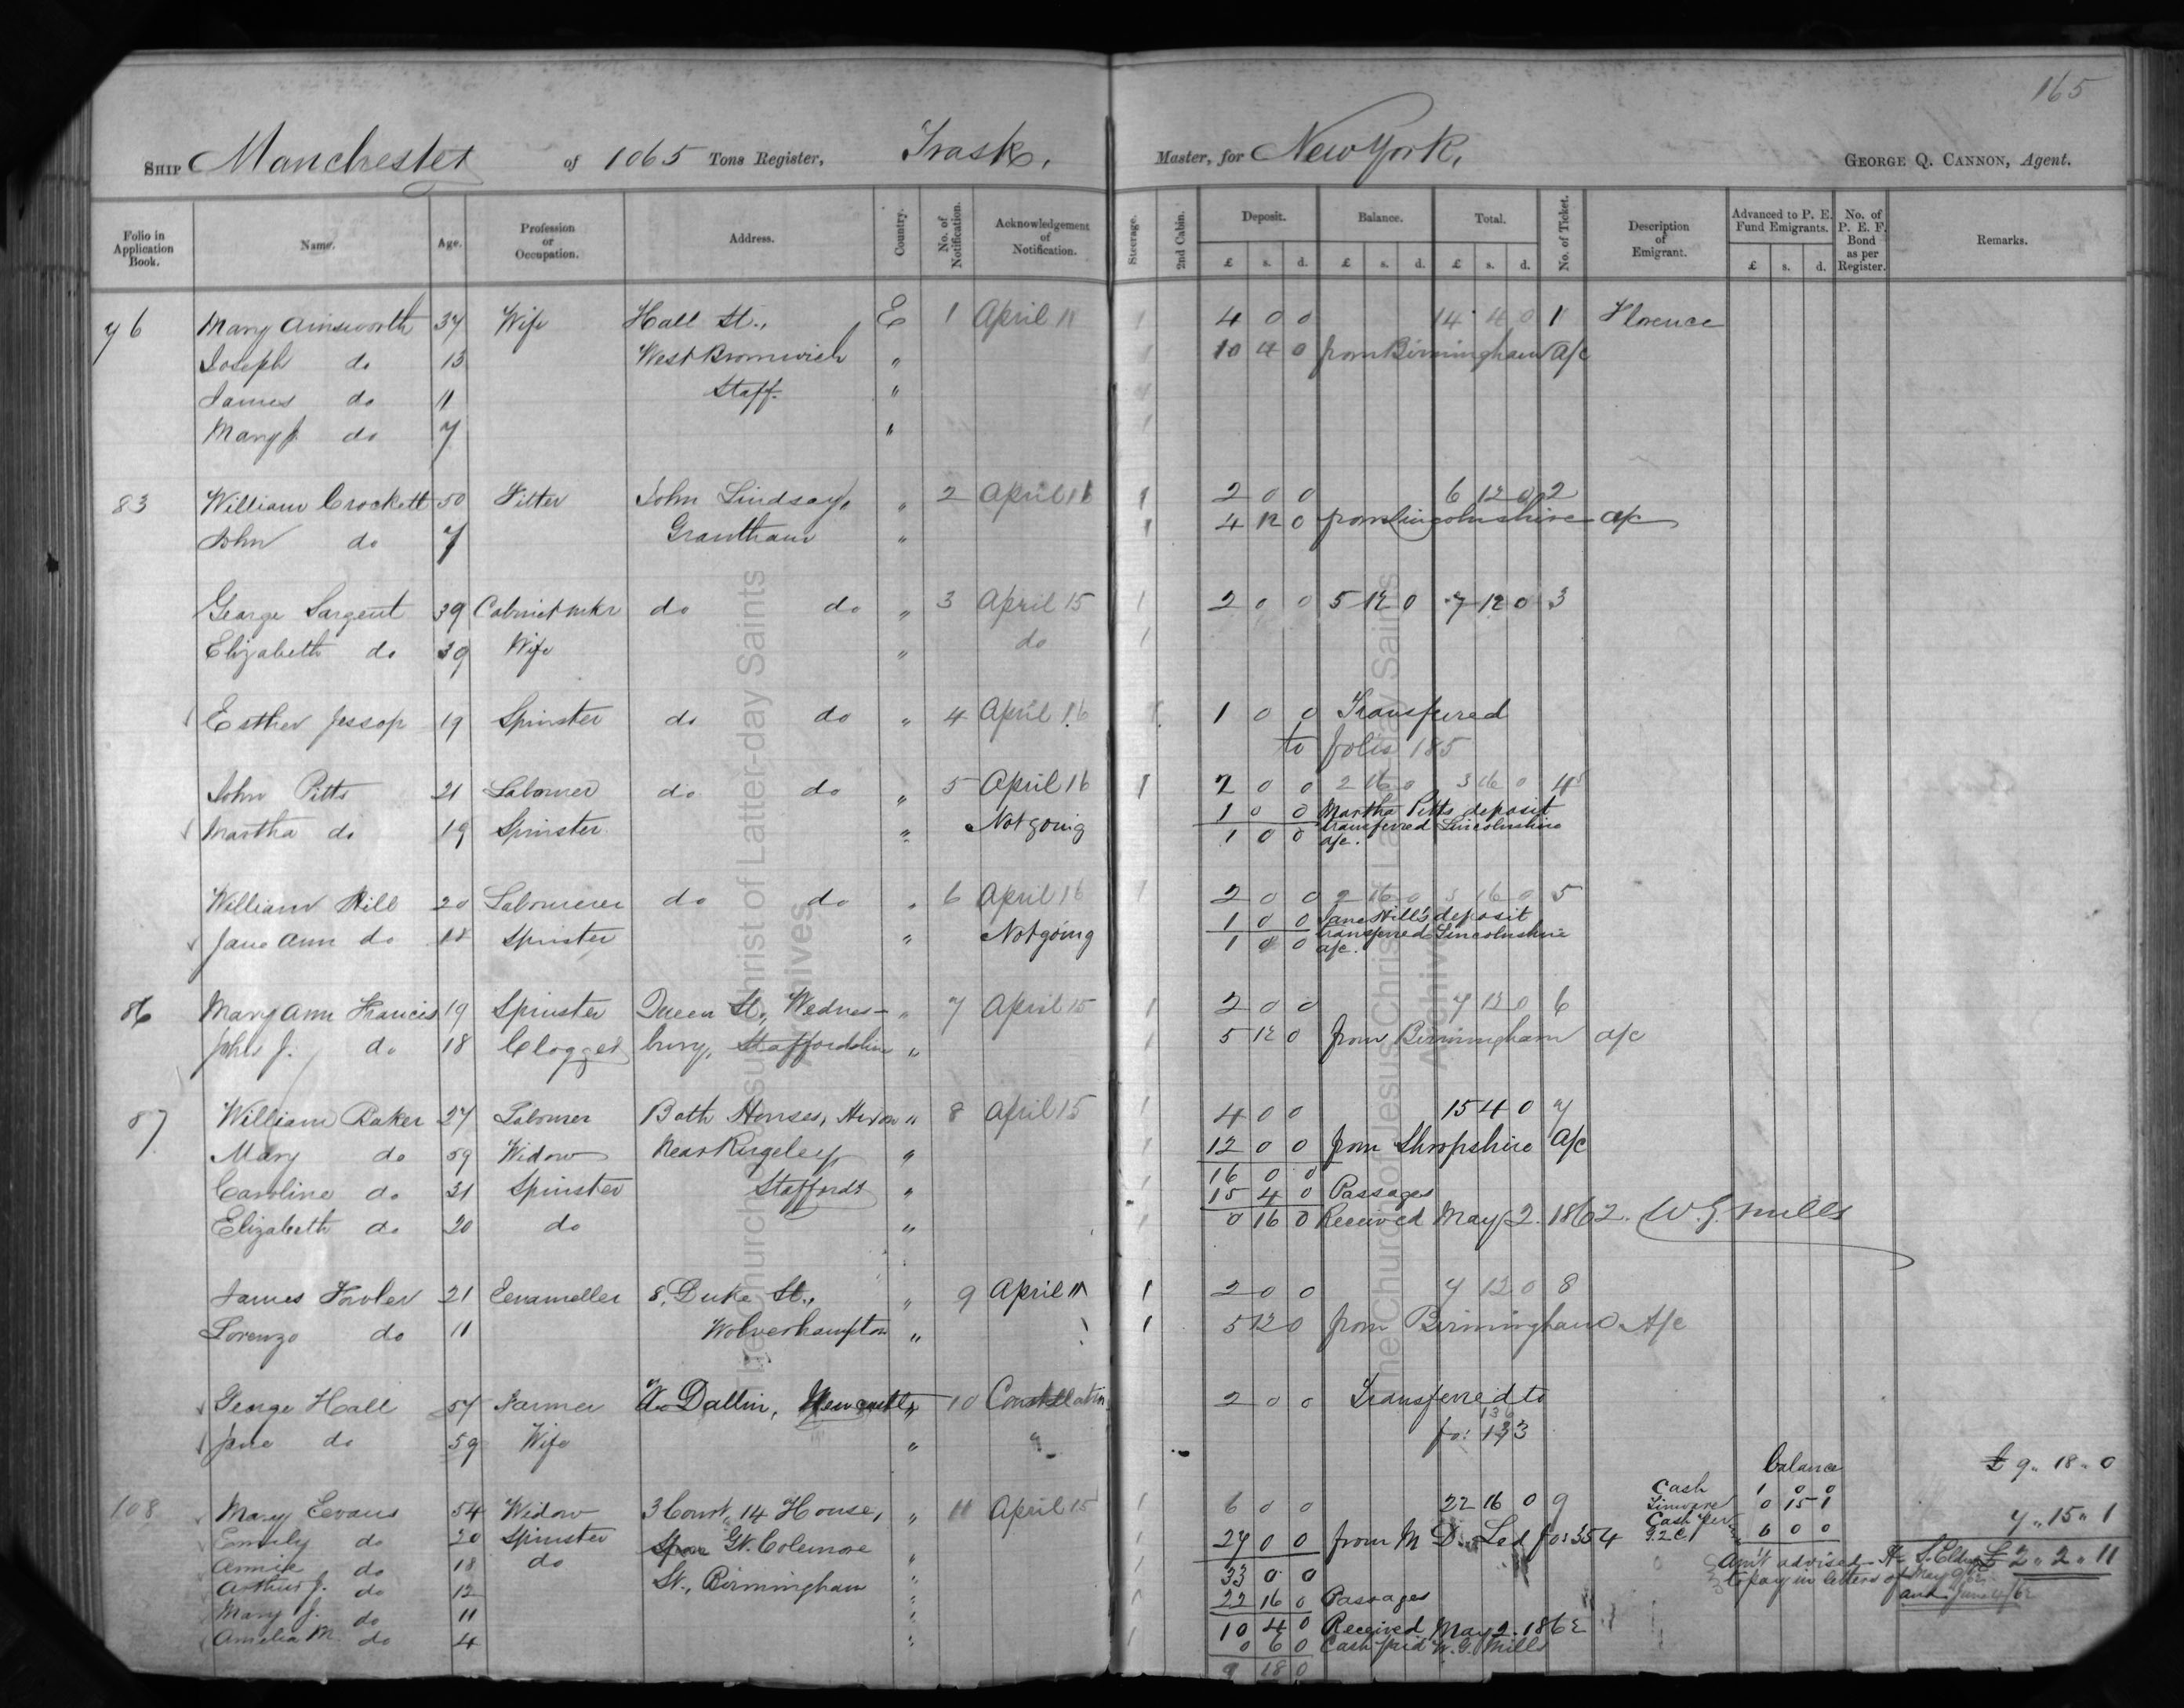 165
SHIP Manchester of 1065 Tons Register, Trask, Master, for New York, GEORGE Q. CANNON, Agent.
Folio in Application Book. Name. Age. Profession or Occupation. Address. Country. No. of Notification. Acknowledgement of Notification. Steerage. 2nd Cabin. Deposit. £ s. d. Balance. £ s. d. Total. £ s. d. No. of Ticket. Description of Emigrant. Advanced to P. E. Fund Emigrants. £ s. d. No. of P. E. F. Bond as per Register. Remarks.
76 Mary Ainsworth 37 Wife Hall St., E 1 April 11 1 4 0 0 14 4 0 1 Florence
Joseph do 13 West Bromwich " 1 10 4 0 from Birmingham a/c
James do 11 Staff. " 1
Mary J. do 7 " 1
83 William Crockett 50 Fitter John Lindsay, " 2 April 16 1 2 0 0 6 12 0 2
John do 7 Grantham " 1 4 12 0 from Lincolnshire a/c
George Sargent 39 Cabinet mkr do do " 3 April 15 1 2 0 0 5 12 0 7 12 0 3
Elizabeth do 39 Wife " do 1
Esther Jessop 19 Spinster do do " 4 April 16 1 1 0 0 Transferred
to folio 185
John Pitts 21 Labourer do do " 5 April 16 1 2 0 0 2 16 0 3 16 0 4
1 0 0 Martha Pitts deposit
Martha do 19 Spinster " Not going 1 0 0 transferred Lincolnshire
a/c.
William Hill 20 Labourer do do " 6 April 16 1 2 0 0 2 16 0 3 16 0 5
1 0 0 Jane Hill's deposit
Jane Ann do 18 Spinster " Not going 1 0 0 transferred Lincolnshire
a/c.
86 Mary Ann Francis 19 Spinster Queen St., Wednes- " 7 April 15 1 2 0 0 7 12 0 6
John J. do 18 Clogger bury, Staffordshire " 1 5 12 0 from Birmingham a/c
87 William Baker 27 Labourer Bath Houses, " 8 April 15 1 4 0 0 15 4 0 7
Mary do 59 Widow Near Rugeley, " 1 12 0 0 from Shropshire a/c
16 0 0
Caroline do 31 Spinster Staffords " 1 15 4 0 Passages
Elizabeth do 20 do " 1 0 16 0 Received May 2. 1862. W. G. Mills
James Fowler 21 Enameller 8, Duke St., " 9 April 11 1 2 0 0 7 12 0 8
Lorenzo do 11 Wolverhampton " 1 5 12 0 from Birmingham A/c
George Hall 57 Farmer W. Dallin, Newcastle " 10 Constellation 2 0 0 Transferred to
136
Jane do 59 Wife " " fo: 133
Balance £ 9 " 18 " 0
Cash 1 0 0
108 Mary Evans 54 Widow 3 Court, 14 House, " 11 April 15 1 6 0 0 22 16 0 9 Tinware 0 15 1
7 " 15 " 1
Emily do 20 Spinster Gt. Colemore " 1 27 0 0 from M D. Led fo: 354 Cash per G.Q.C. 6 0 0
£ 2 " 2 " 11
Annie do 18 do St., Birmingham " 1 33 0 0 Am't advised
Arthur J. do 12 " 1 22 16 0 Passages to pay in letters of May
Mary J. do 11 " 1 10 4 0 Received May 2. 1862 and June
Amelia M. do 4 " 1 0 6 0 Cash paid W. G. Mills
9 18 0
The Church of Jesus Christ of Latter-day Saints
Archives
The Church of Jesus Christ of Latter-day Saints
Archives